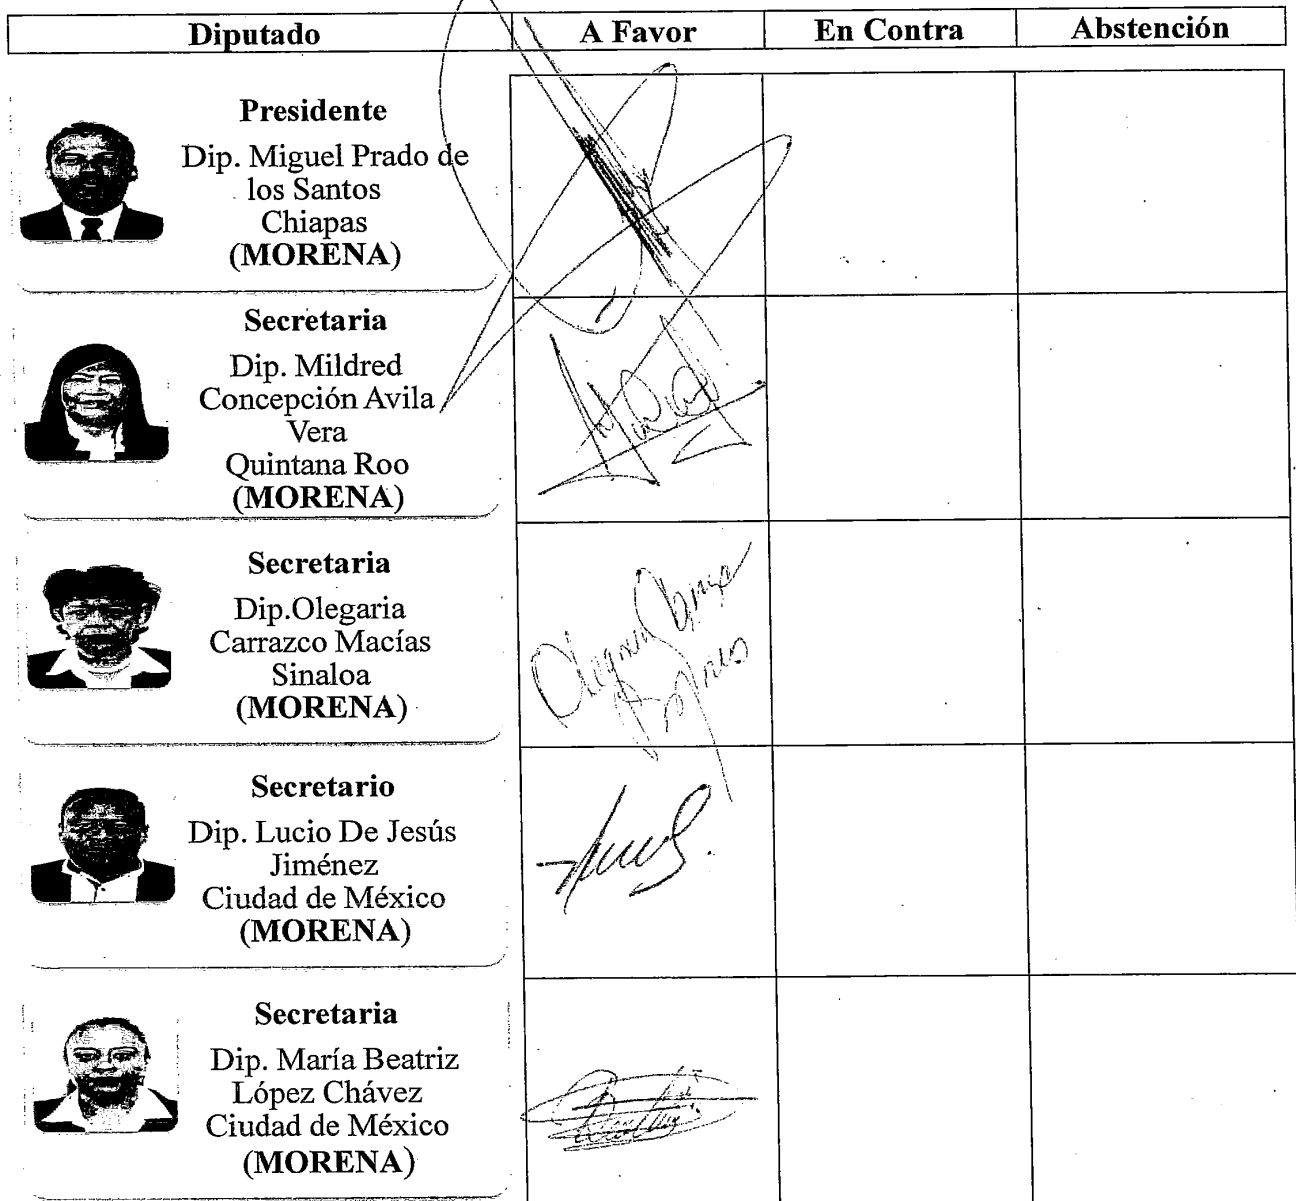 Diputado A Favor En Contra Abstención
Presidente
Dip. Miguel Prado de
los Santos
Chiapas
(MORENA)
Secretaria
Dip. Mildred
Concepción Avila
Vera
Quintana Roo
(MORENA)
Secretaria
Dip.Olegaria
Carrazco Macías
Sinaloa
(MORENA)
Secretario
Dip. Lucio De Jesús
Jiménez
Ciudad de México
(MORENA)
Secretaria
Dip. María Beatriz
López Chávez
Ciudad de México
(MORENA)